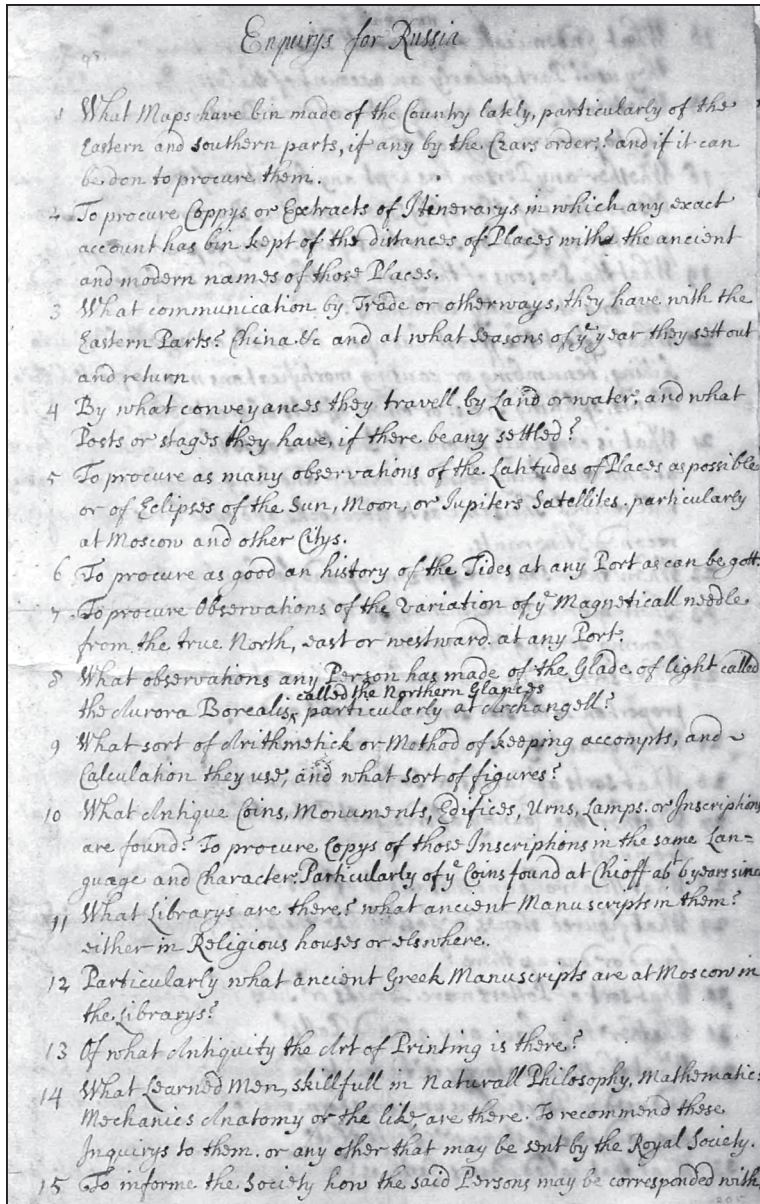 Enquirys for Russia
1 What Maps have bin made of the Country lately, particularly of the
Eastern and southern parts, if any by the Czars order;? and if it can
be don to procure them.
2 To procure Coppys or Extracts of Itinerarys in which any exact
account has bin kept of the distances of Places with the ancient
and modern names of those Places.
3 What communication by Trade or otherways, they have with the
Eastern Parts? China &c and at what seasons of yͤ year they sett out
and return
4 By what conveyances they travell by Land or water; and what
Posts or stages they have, if there be any settled?
5 To procure as many observations of the Latitudes of Places as possible
or of Eclipses of the Sun, Moon, or Jupiters Satellites. particularly
at Moscow and other Citys.
6 To procure as good an history of the Tides at any Port as can be gott.
7 To procure Observations of the Variation of yͤ Magneticall needle
from the true North, east or westward. at any Port.
8 What observations any Person has made of the Glade of light called
called the Northern Glances
the Aurora Borealis, particularly at Archangell?
9 What sort of Arithmetick or Method of keeping accompts, and
Calculation they use, and what sort of figures?
10 What Antique Coins, Monuments, Edifices, Urns, Lamps. or Inscriptions
are found? To procure Copys of those Inscriptions in the same Lan=
guage and Character. Particularly of yͤ Coins found at Chioff abᵗ 6 years since
11 What Librarys are there? what ancient Manuscripts in them?
either in Religious houses or elswhere.
12 Particularly what ancient Greek Manuscripts are at Moscow in
the Librarys?
13 Of what Antiquity the Art of Printing is there?
14 What Learned Men, skillfull in Naturall Philosophy, Mathematics
Mechanics Anatomy or the like, are there. To recommend these
Inquirys to them. or any other that may be sent by the Royal Society.
15 To informe the Society how the said Persons may be corresponded with